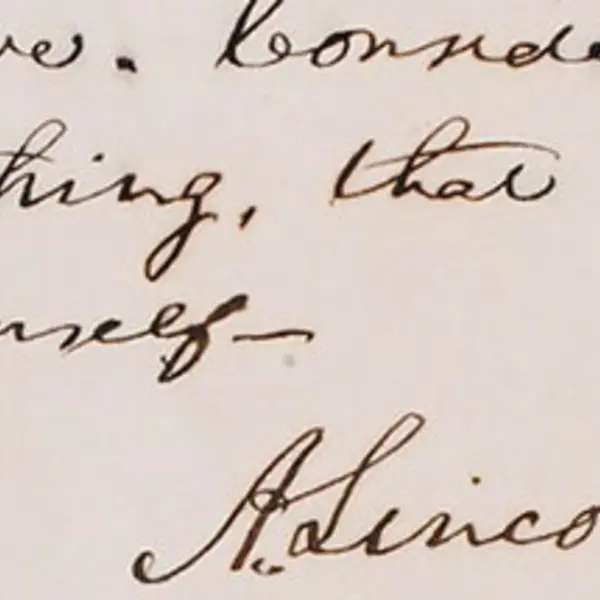 ve. Conside
thing, that
mself—
A. Linco